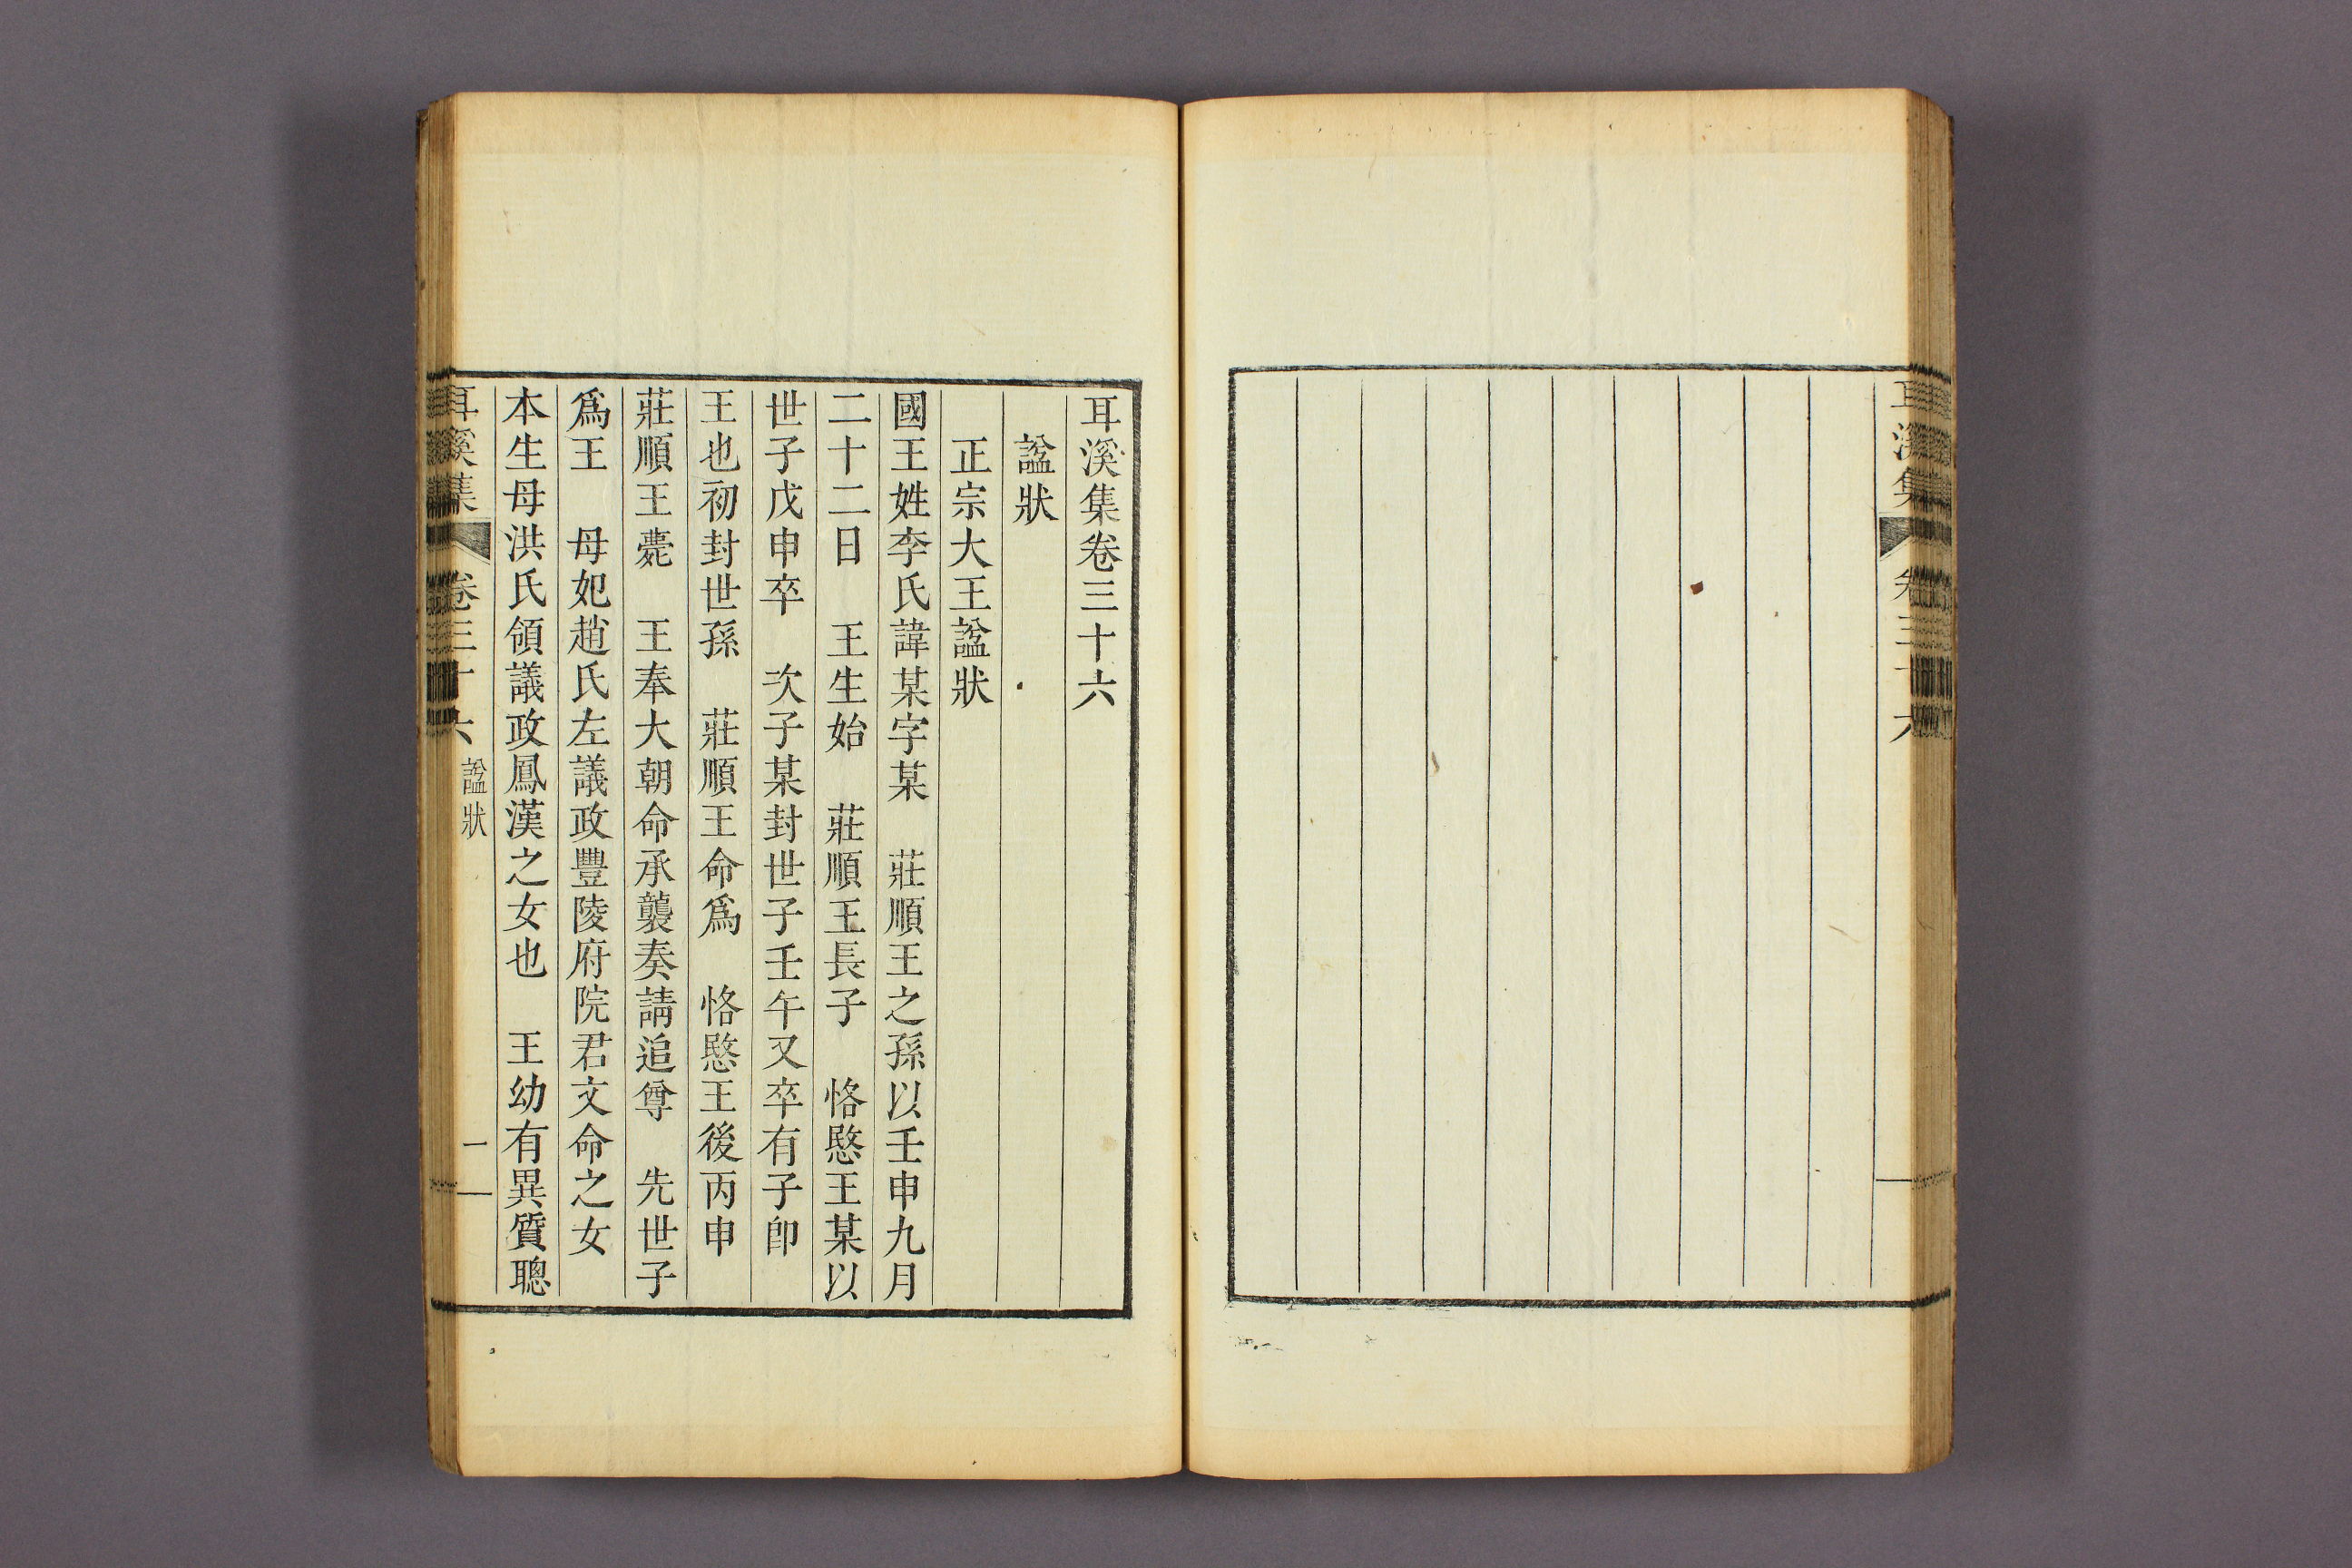 耳溪集卷三十六
諡狀
正宗大王諡狀
國王姓李氏諱某字某　莊順王之孫以壬申九月
二十二日　王生始　莊順王長子　恪愍王某以
世子戊申卒　次子某封世子壬午又卒有子卽
王也初封世孫　莊順王命爲　恪愍王後丙申
莊順王薨　王奉大朝命承襲奏請追尊　先世子
爲王　母妃趙氏左議政豐陵府院君文命之女
本生母洪氏領議政鳳漢之女也　王幼有異質聰
耳溪集　卷三十六　諡狀　一